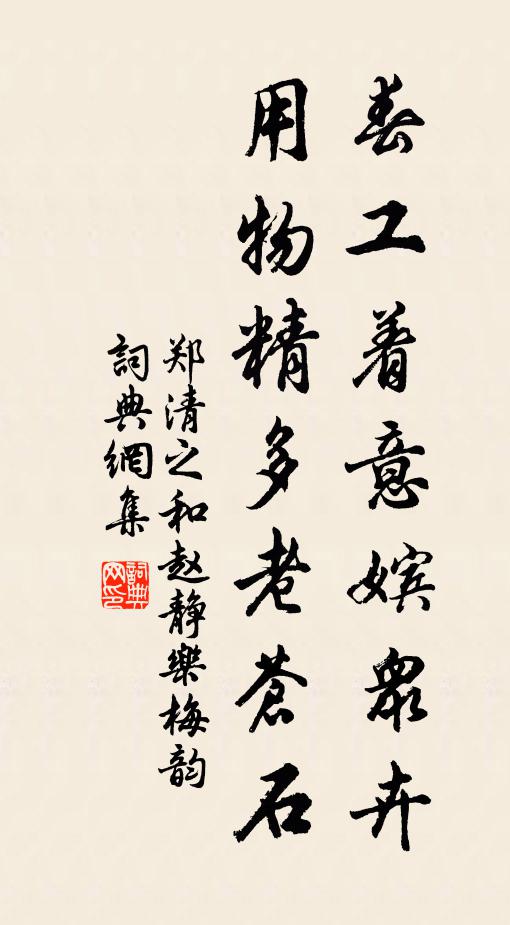 春工着意嬪衆卉
用物精多老蒼石
郑清之和赵靜樂梅韵
詞典網集
詞典
网印